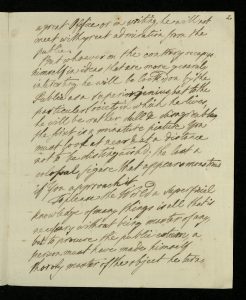 a great Officer in writing, he will not
meet with great admiration from the
public.
But whoever on the contrary occupys
himself in ideas that are more general
he will be look'd on by the
Public as a superior genius but to the
particular Societies which he lives,
he will be rather dull &
the first is a miniature picture you
must look at near but at a distance
not to be distinguished, the last a
colossal figure that appears monstrous
if you approach it
To please the World a superficial
knowledge of many things is all that is
necessary without being master of any
but to procure the public esteem a
person must have made himself
thoroly master of the subject he turns